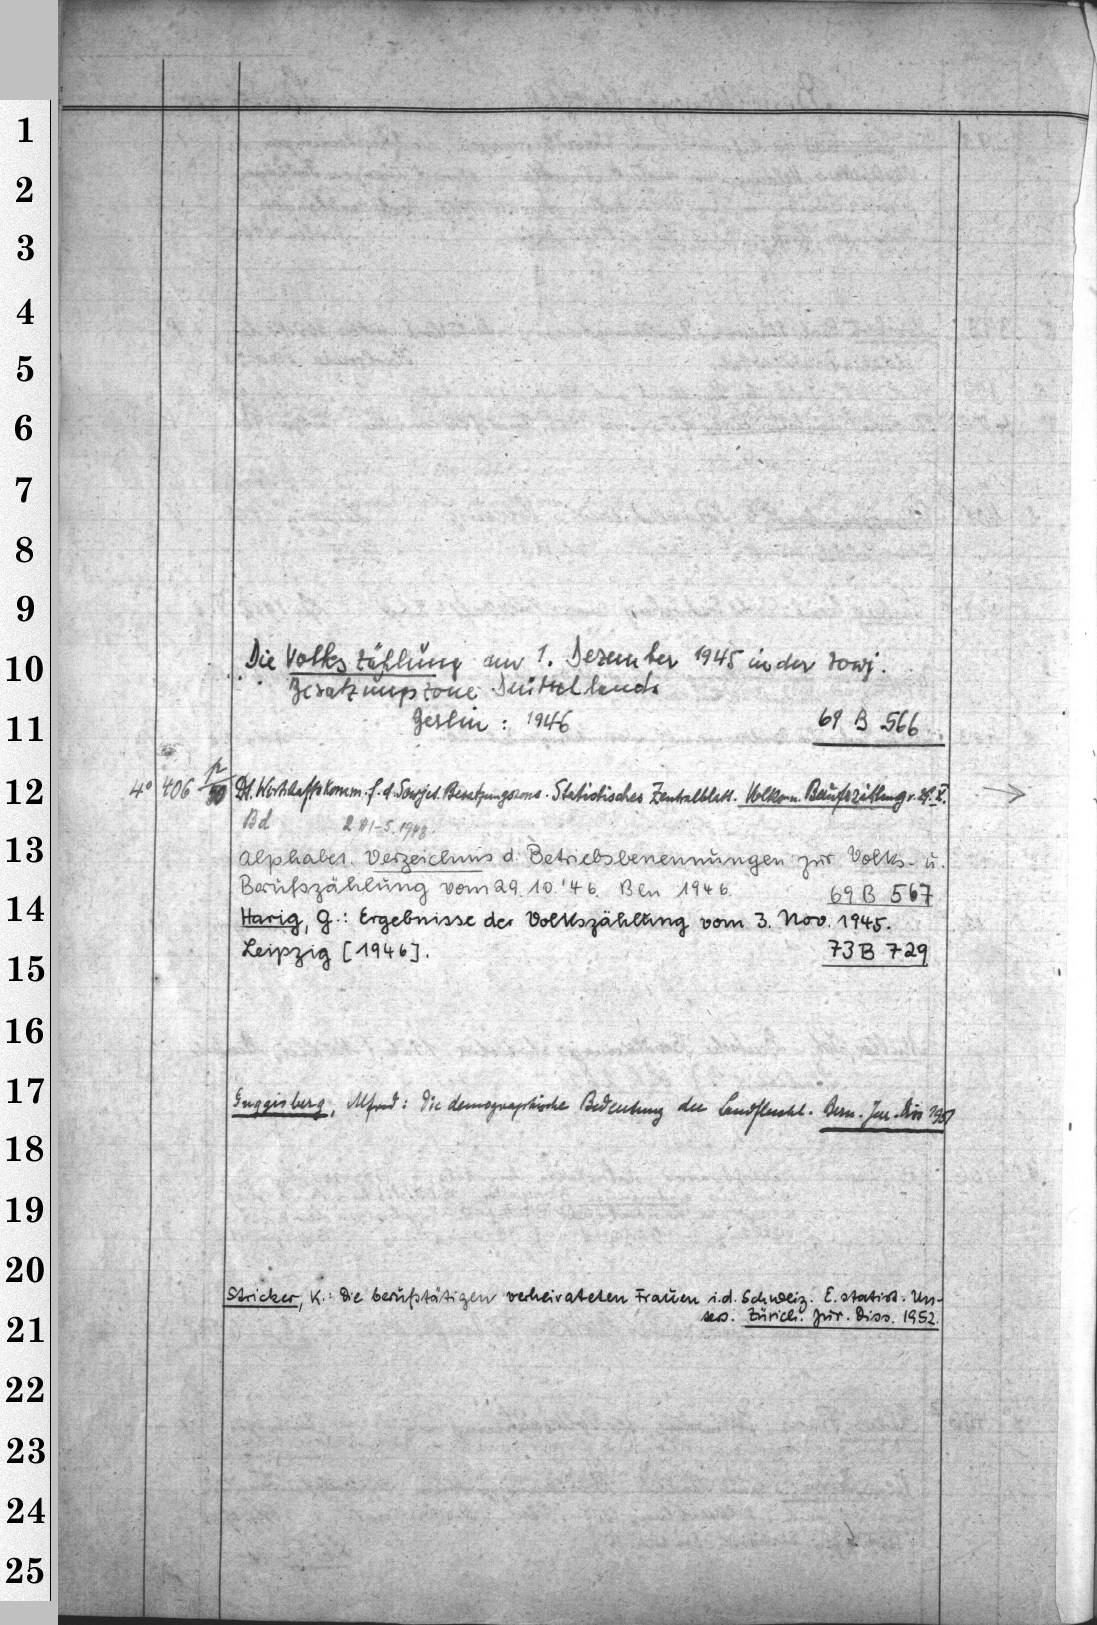 1
2
3
4
5
6
7
8
9
10
11
12
13
14
15
16
17
18
19
20
21
22
23
24
25
Die Volkszählung am 1. Dezember 1945 in der sowj.
Besatzungszone Deutschlands
Berlin: 1946 69 B 566
4° 406 Dt. Wirtschaftskomm. f. d. Sowjet. Besatzungszone. Statistisches Zentralblatt. Volks u. Berufszählung v. 29. X. →
Bd 2 1-5. 1948.
Alphabet. Verzeichnis d. Betriebsbenennungen zur Volks- u.
Berufszählung vom 29. 10. '46. Bln 1946. 69 B 567
Harig, G.: Ergebnisse der Volkszählung vom 3. Nov. 1945.
Leipzig [1946]. 73 B 729
Guggisberg, Alfred: Die demographische Bedeutung der Landflucht. Bern. Jur. Diss 1951
Stricker, K.: Die berufstätigen verheirateten Frauen i. d. Schweiz. E. statist. Un-
ters. Zürich. jur. Diss. 1952.